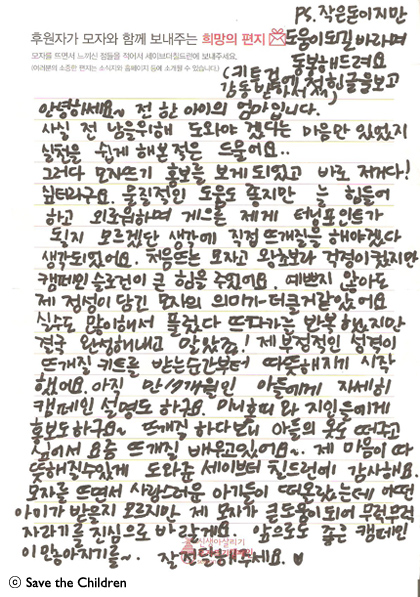 PS. 작은돈이지만
도움이 되길 바라며
동봉해드려요
후원자가 모자와 함께 보내주는 희망의 편지
모자를 뜨면서 느끼신 점들을 적어서 세이브더칠드런에 보내주세요.
(여러분의 소중한 편지는 소식지와 홈페이지 등에 소개될 수 있습니다.)
(키트겉에 적힌글을보고
감동 받아서요)
안녕하세요~ 전 한 아이의 엄마입니다.
사실 전 남을위해 도와야 겠다는 마음만 있었지
실천을 쉽게 해본적은 드물어요..
그러다 모자뜨기 홍보를 보게되었고 바로 저거다!
싶더라구요. 물질적인 도움도 좋지만 늘 힘들어
하고 외로워하며 게으른 제게 터닝포인트가
될지 모르겠단 생각에 직접 뜨개질을 해야겠다
생각되었어요. 처음뜨는 모자고 왕초보라 걱정이 컸지만
캠페인 슬로건이 큰 힘을 주었어요. 예쁘지 않아도
제 정성이 담긴 모자의 의미가 더클거같았어요
실수도 많이해서 풀렀다 뜨다가를 반복 했지만
결국 완성해내고 말았죠! 제 부정적인 성격이
뜨개질 키트를 받는순간부터 따뜻해지기 시작
했어요. 아직 만17개월인 아들에게 자세히
캠페인 설명도 하구요. 미니홈피와 지인들에게
홍보도하구요~ 뜨개질 하다보니 아들의 옷도 떠주고
싶어서 요즘 뜨개질 배우고있어요~. 제 마음이 따
뜻해질수있게 도와준 세이브더 칠드런에 감사해요.
모자를 뜨면서 사랑스러운 아기들이 떠올랐는데 어떤
아이가 받을지 모르지만 제 모자가 큰도움이되어 무럭무럭
자라기를 진심으로 바랄게요. 앞으로도 좋은 캠페인
이 많아지기를~. 잘 전달해주세요. ♥
신생아살리기
© Save the Children